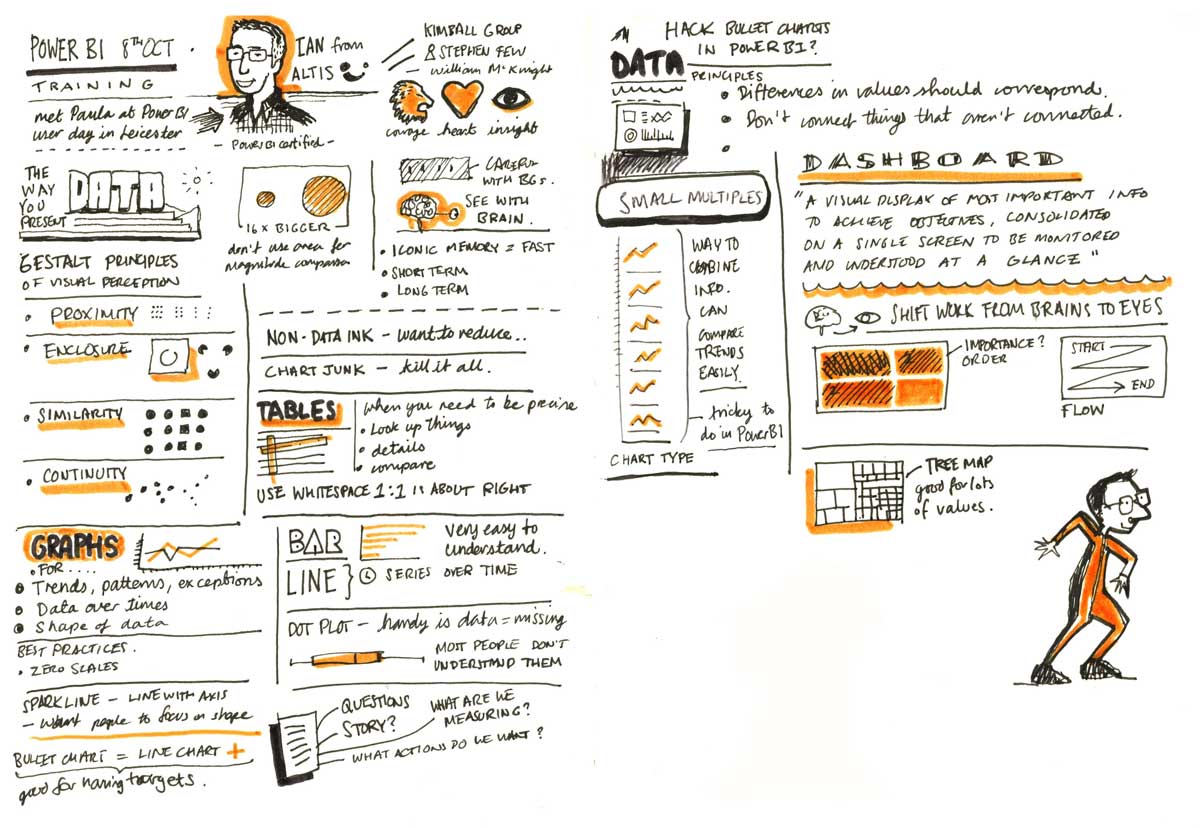 POWER BI 8TH OCT
TRAINING
met Paula at Power BI
user day in Leicester
IAN from
ALTIS
- POWER BI certified -
KIMBALL GROUP
& STEPHEN FEW
- William McKnight
courage heart insight
THE
WAY
YOU
PRESENT
DATA
16 x BIGGER
don't use area for
magnitude comparison
CAREFUL
WITH BGs.
SEE WITH
BRAIN.
• ICONIC MEMORY = FAST
• SHORT TERM
• LONG TERM
GESTALT PRINCIPLES
OF VISUAL PERCEPTION
• PROXIMITY
• ENCLOSURE
• SIMILARITY
• CONTINUITY
NON-DATA INK - want to reduce..
CHART JUNK - kill it all.
TABLES
when you need to be precise
• Look up things
• details
• compare
USE WHITESPACE 1:1 IS ABOUT RIGHT
GRAPHS
• FOR....
• Trends, patterns, exceptions
• Data over times
• Shape of data
BEST PRACTICES.
• ZERO SCALES
SPARKLINE - LINE WITH AXIS
- want people to focus on shape
BULLET CHART = LINE CHART +
good for having targets.
BAR
very easy to
understand.
LINE } SERIES OVER TIME
DOT PLOT - handy is data = missing
MOST PEOPLE DON'T
UNDERSTAND THEM
QUESTIONS
STORY?
WHAT ARE WE
MEASURING?
WHAT ACTIONS DO WE WANT?
HACK BULLET CHARTS
IN POWER BI?
DATA
PRINCIPLES
• Differences in values should correspond.
• Don't connect things that aren't connected.
SMALL MULTIPLES
WAY TO
COMBINE
INFO.
CAN
COMPARE
TRENDS
EASILY.
- tricky to
do in POWER BI
CHART TYPE
DASHBOARD
"A VISUAL DISPLAY OF MOST IMPORTANT INFO
TO ACHIEVE OBJECTIVES, CONSOLIDATED
ON A SINGLE SCREEN TO BE MONITORED
AND UNDERSTOOD AT A GLANCE"
SHIFT WORK FROM BRAINS TO EYES
IMPORTANCE?
ORDER
START
END
FLOW
- TREE MAP
good for lots
of values.